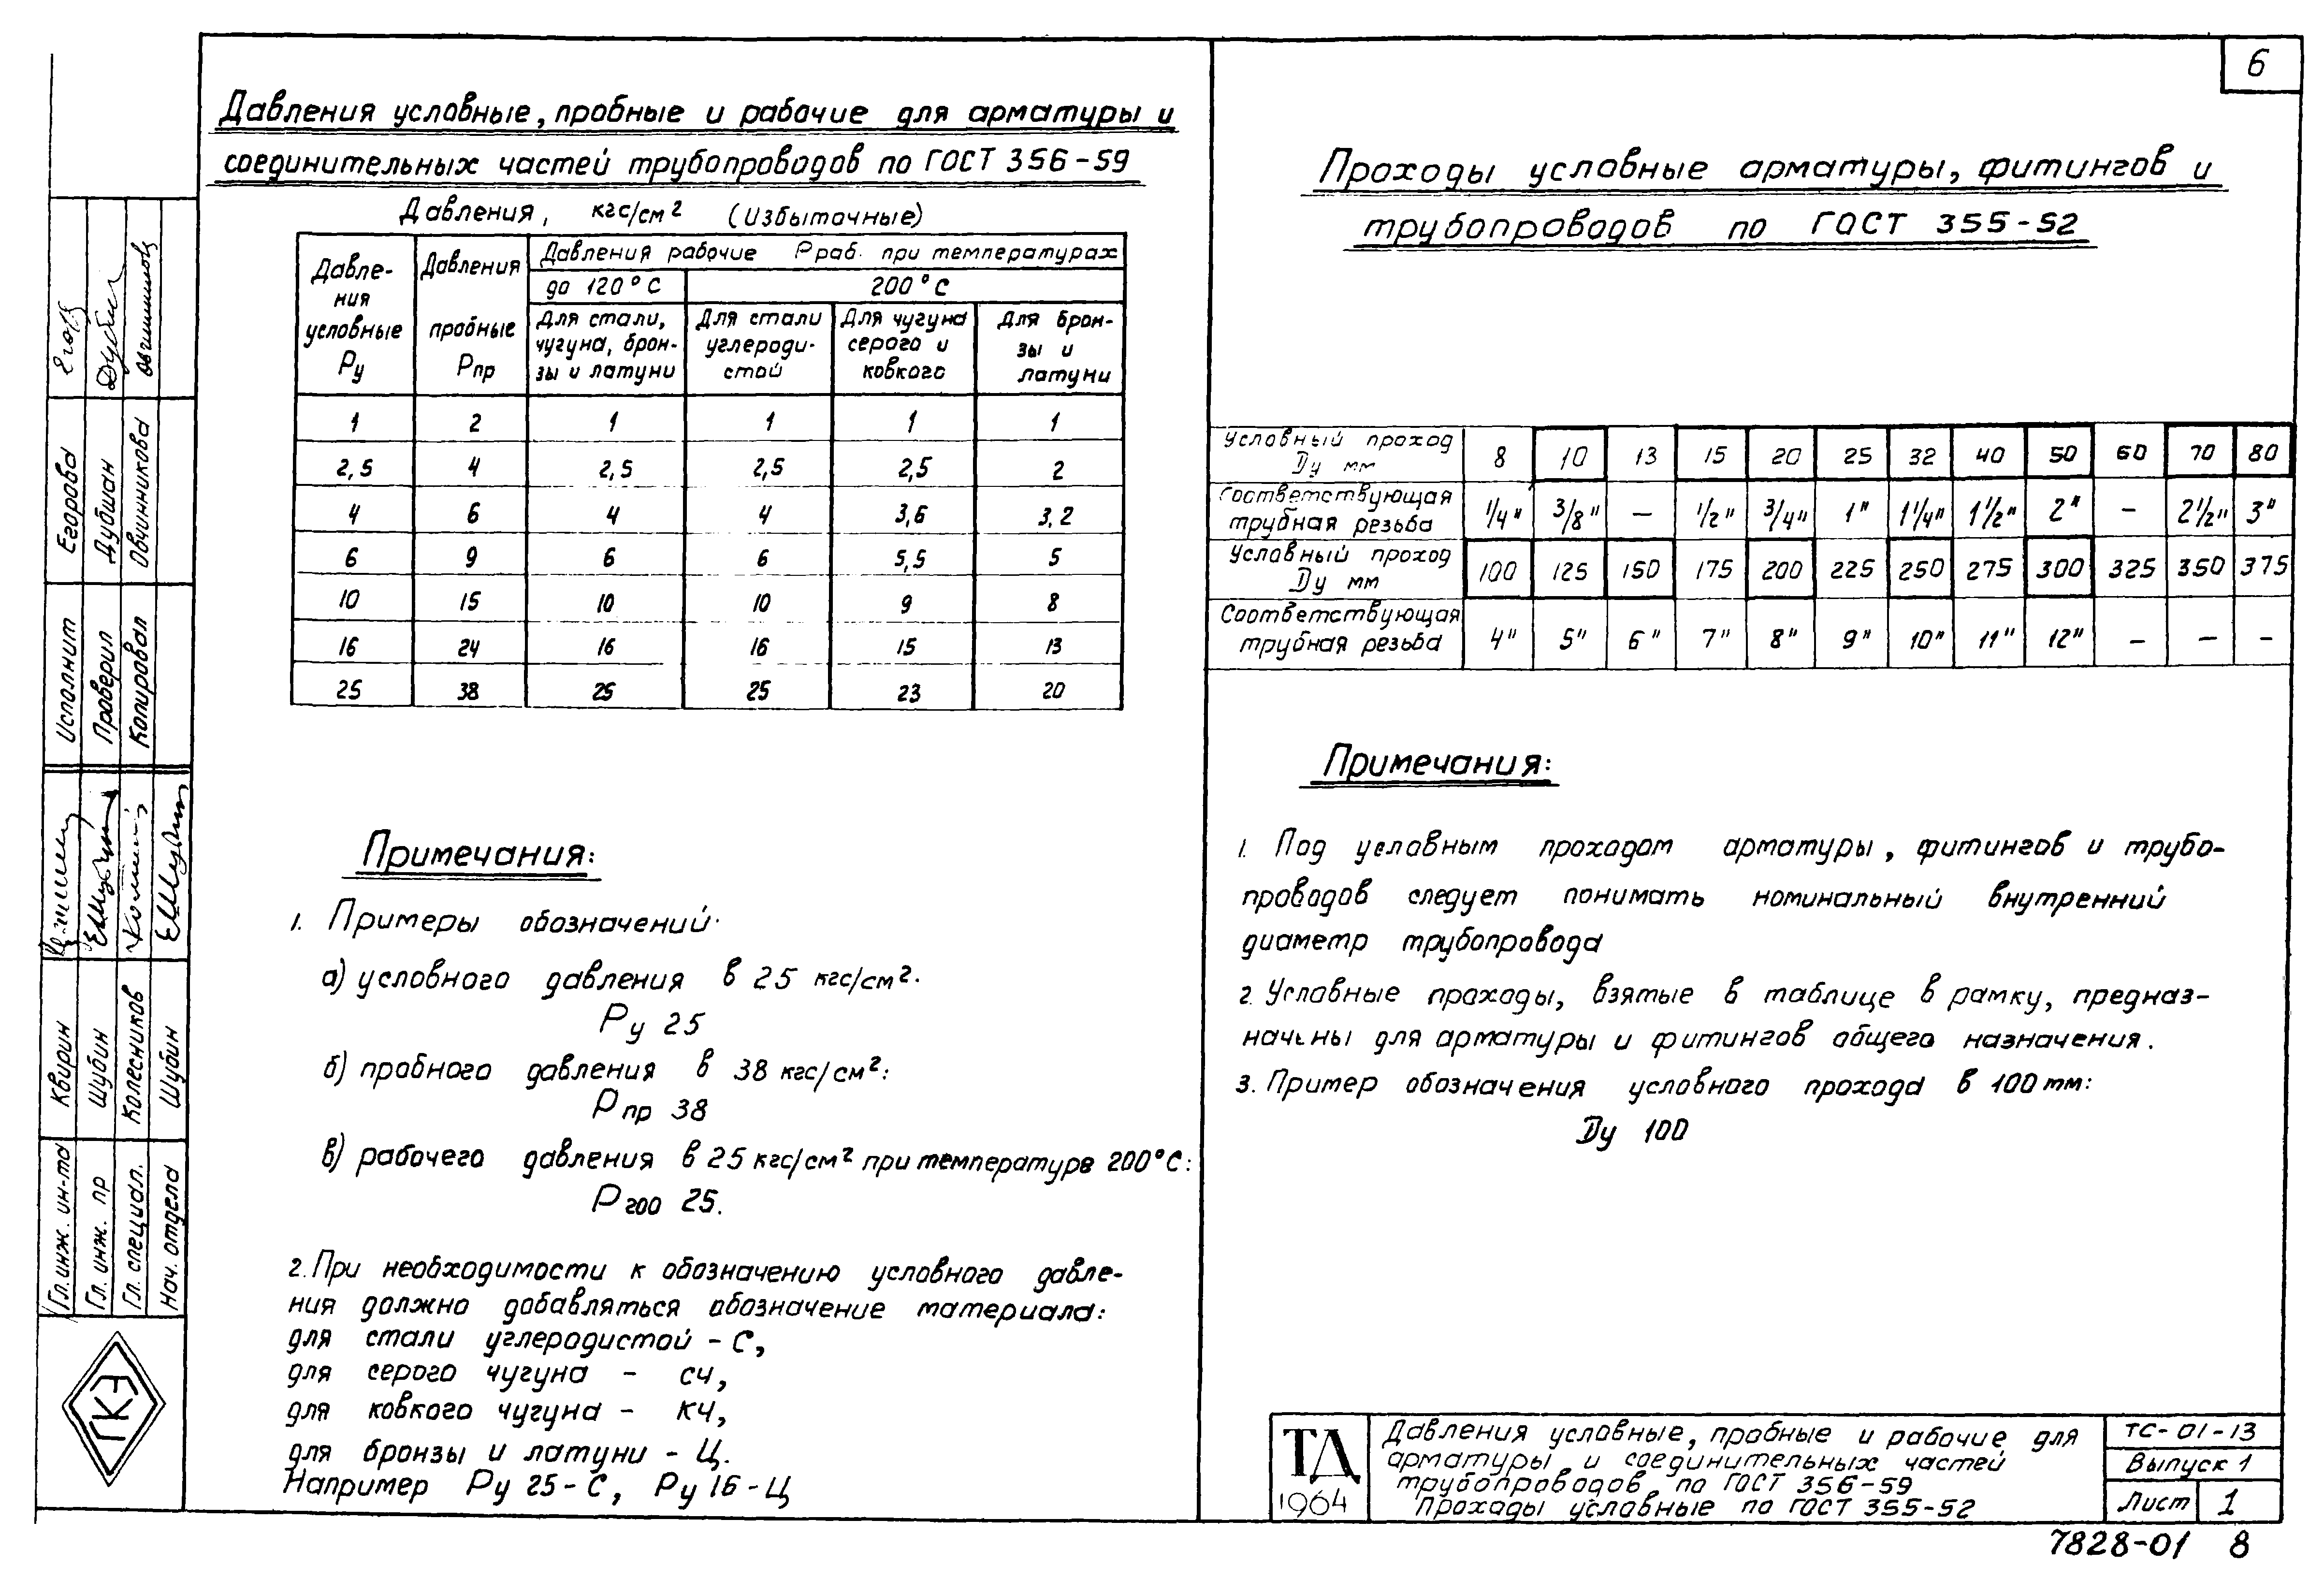 6
Давления условные, пробные и рабочие для арматуры и
соединительных частей трубопроводов по ГОСТ 356-59
Давления, кгс/см² (избыточные)
Давле-
ния
условные
Ру
Давления
пробные
Рпр
Давления рабочие Рраб. при температурах
до 120°С
200°С
Для стали,
чугуна, брон-
зы и латуни
Для стали
углероди-
стой
Для чугуна
серого и
ковкого
Для брон-
зы и
латуни
1 2 1 1 1 1
2,5 4 2,5 2,5 2,5 2
4 6 4 4 3,6 3,2
6 9 6 6 5,5 5
10 15 10 10 9 8
16 24 16 16 15 13
25 38 25 25 23 20
Примечания:
1. Примеры обозначений:
а) условного давления в 25 кгс/см².
Ру 25
б) пробного давления в 38 кгс/см²:
Рпр 38
в) рабочего давления в 25 кгс/см² при температуре 200°С:
Р200 25.
2. При необходимости к обозначению условного давле-
ния должно добавляться обозначение материала:
для стали углеродистой - С,
для серого чугуна - сч,
для ковкого чугуна - КЧ,
для бронзы и латуни - Ц.
Например Ру 25-С, Ру 16-Ц
Проходы условные арматуры, фитингов и
трубопроводов по ГОСТ 355-52
Условный проход
Dy мм
8 10 13 15 20 25 32 40 50 60 70 80
Соответствующая
трубная резьба
1/4" 3/8" – 1/2" 3/4" 1" 1 1/4" 1 1/2" 2" – 2 1/2" 3"
Условный проход
Dy мм
100 125 150 175 200 225 250 275 300 325 350 375
Соответствующая
трубная резьба
4" 5" 6" 7" 8" 9" 10" 11" 12" – – –
Примечания:
1. Под условным проходом арматуры, фитингов и трубо-
проводов следует понимать номинальный внутренний
диаметр трубопровода
2. Условные проходы, взятые в таблице в рамку, предназ-
начены для арматуры и фитингов общего назначения.
3. Пример обозначения условного прохода в 100 мм:
Dy 100
ТД
1964
Давления условные, пробные и рабочие для
арматуры и соединительных частей
трубопроводов по ГОСТ 356-59
Проходы условные по ГОСТ 355-52
ТС-01-13
Выпуск 1
Лист 1
7828-01 8
Гл. инж. ин-та Квирин
Гл. инж. пр Шубин
Гл. специал. Колесников
Нач. отдела Шубин
Исполнит Егорова
Проверил Дубиан
Копировал Овчинникова
ГКЭ